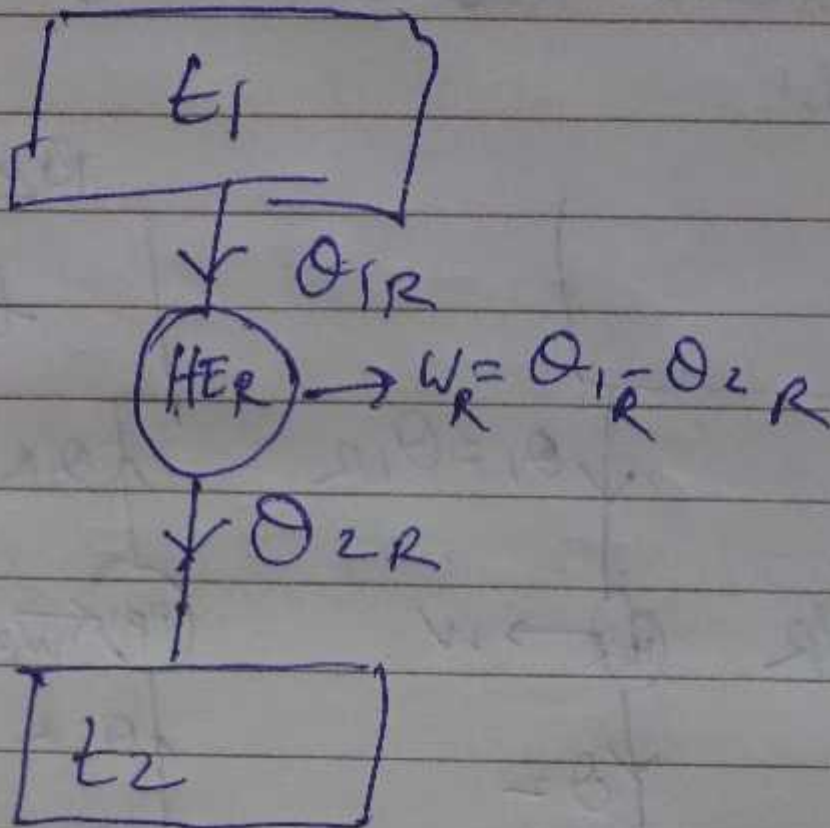 t1
θ1R
HER → WR = θ1R - θ2R
θ2R
t2